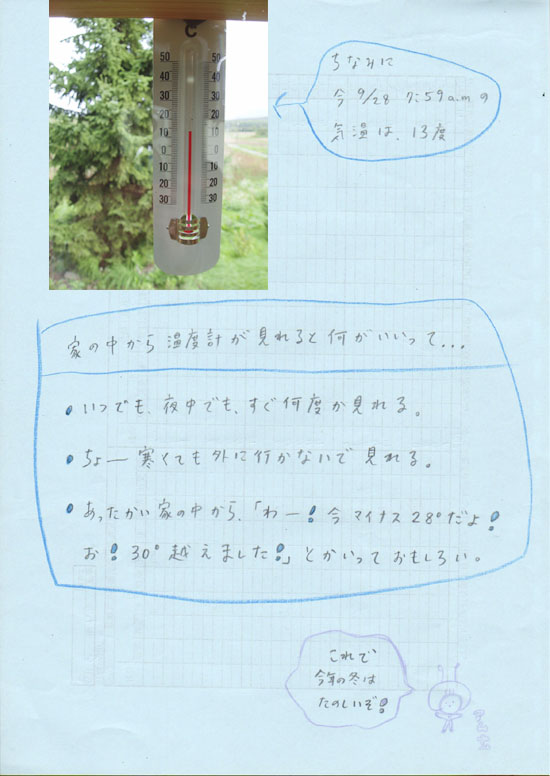 C
50 50
40 40
30 30
20 20
10 10
0 0
10 10
20 20
30 30
ちなみに
今 9/28 7:59a.m の
気温は、13度
家の中から温度計が見れると何がいいって...
・いつでも、夜中でも、すぐ何度か見れる。
・ちょー寒くても外に行かないで見れる。
・あったかい家の中から、「わー!今マイナス28°だよ!
お!30°越えました!」とかいっておもしろい。
これで
今年の冬は
たのしいぞ!